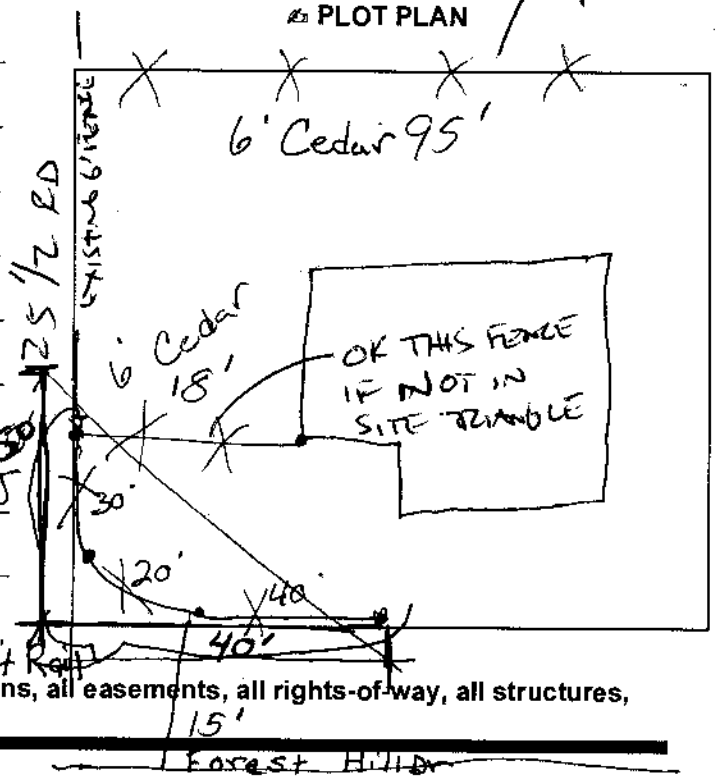 PLOT PLAN
6' Cedar 95'
EXISTING 6' FENCE
25 1/2 RD
6' Cedar
18'
OK THIS FENCE
IF NOT IN
SITE TRIANGLE
30'
20'
40'
40'
ns, all easements, all rights-of-way, all structures,
15'
Forest Hill Dr